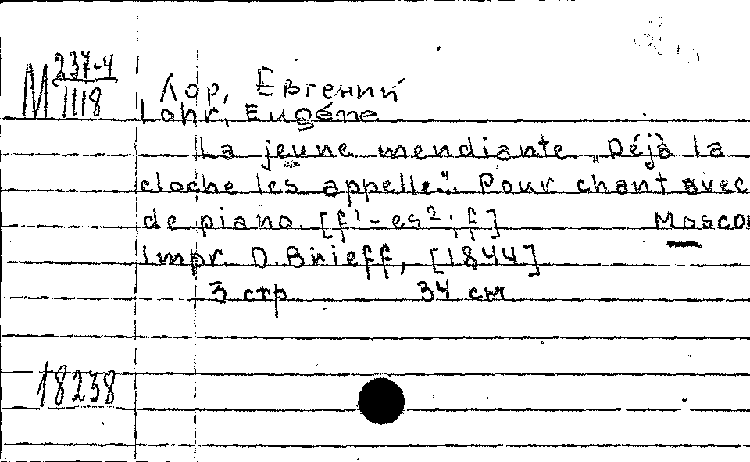 М 237-4
1118
Лор, Евгений
Lohr, Eugéne
La jeune mendiante. „Déjà la
cloche les appelle". Pour chant avec
de piano. [f¹-es²; f] Moscou
Impr. D. Brieff, [1844]
3 стр 34 см
18238